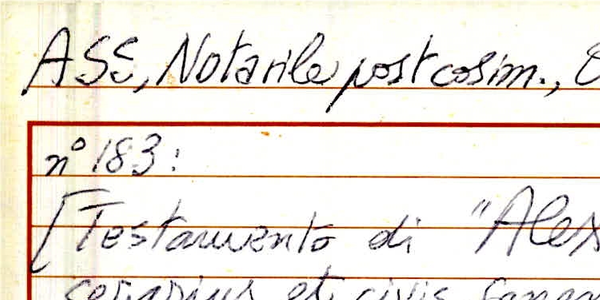 ASS, Notarile postcosim.,
n° 183:
[Testamento di "Alex
et civis